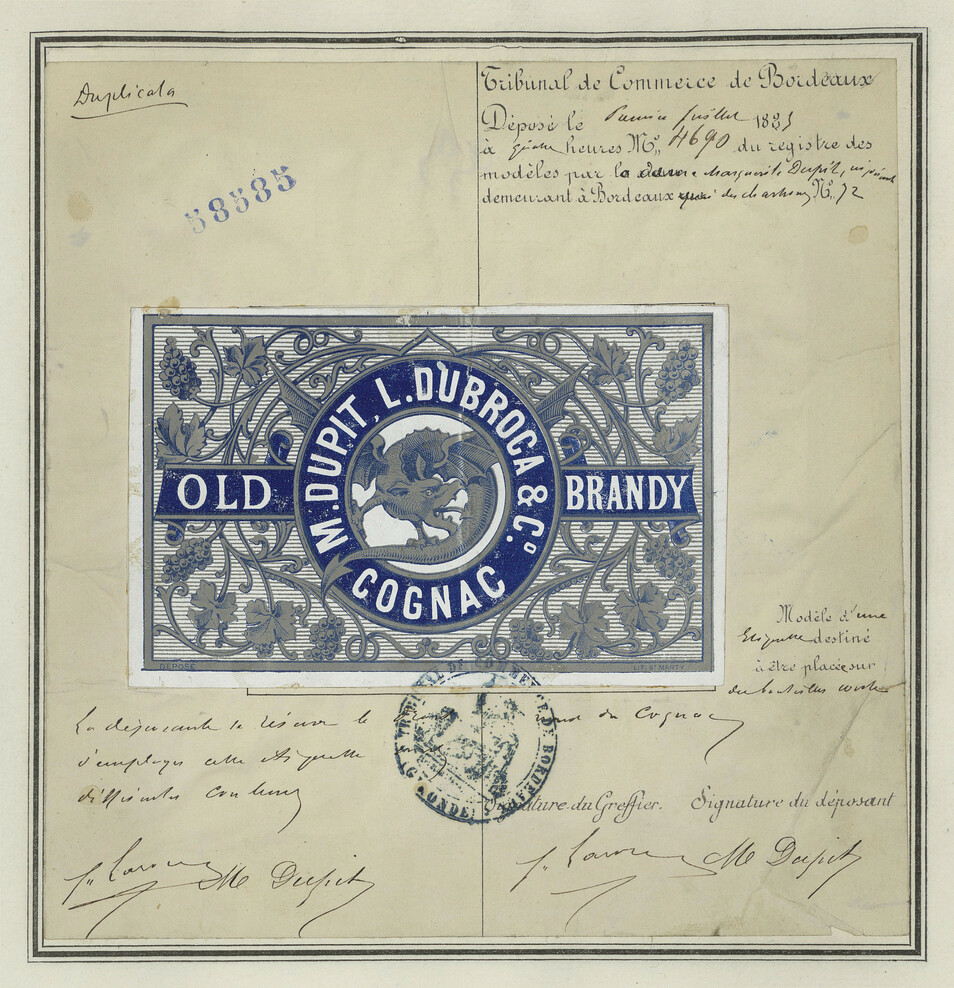 Duplicata
58585
Tribunal de Commerce de Bordeaux
Déposé le Premier Juillet 188
à heures Nº 4690 du registre des
modèles par la dame Marguerite Dupit,
demeurant à Bordeaux quai des chartrons Nº 72
M. DUPIT, L. DUBROCA & Cº.
COGNAC
OLD BRANDY
DÉPOSÉ
LIT. MARTY
Modèle d'une
Etiquette destiné
à être placée sur
des bouteilles
La déposante se réserve le
du Cognac
d'employer cette étiquette
différentes couleurs
TRIBUNAL DE COMMERCE DE BORDEAUX
(GIRONDE)
Signature du Greffier. Signature du déposant
M Dupit
M Dupit